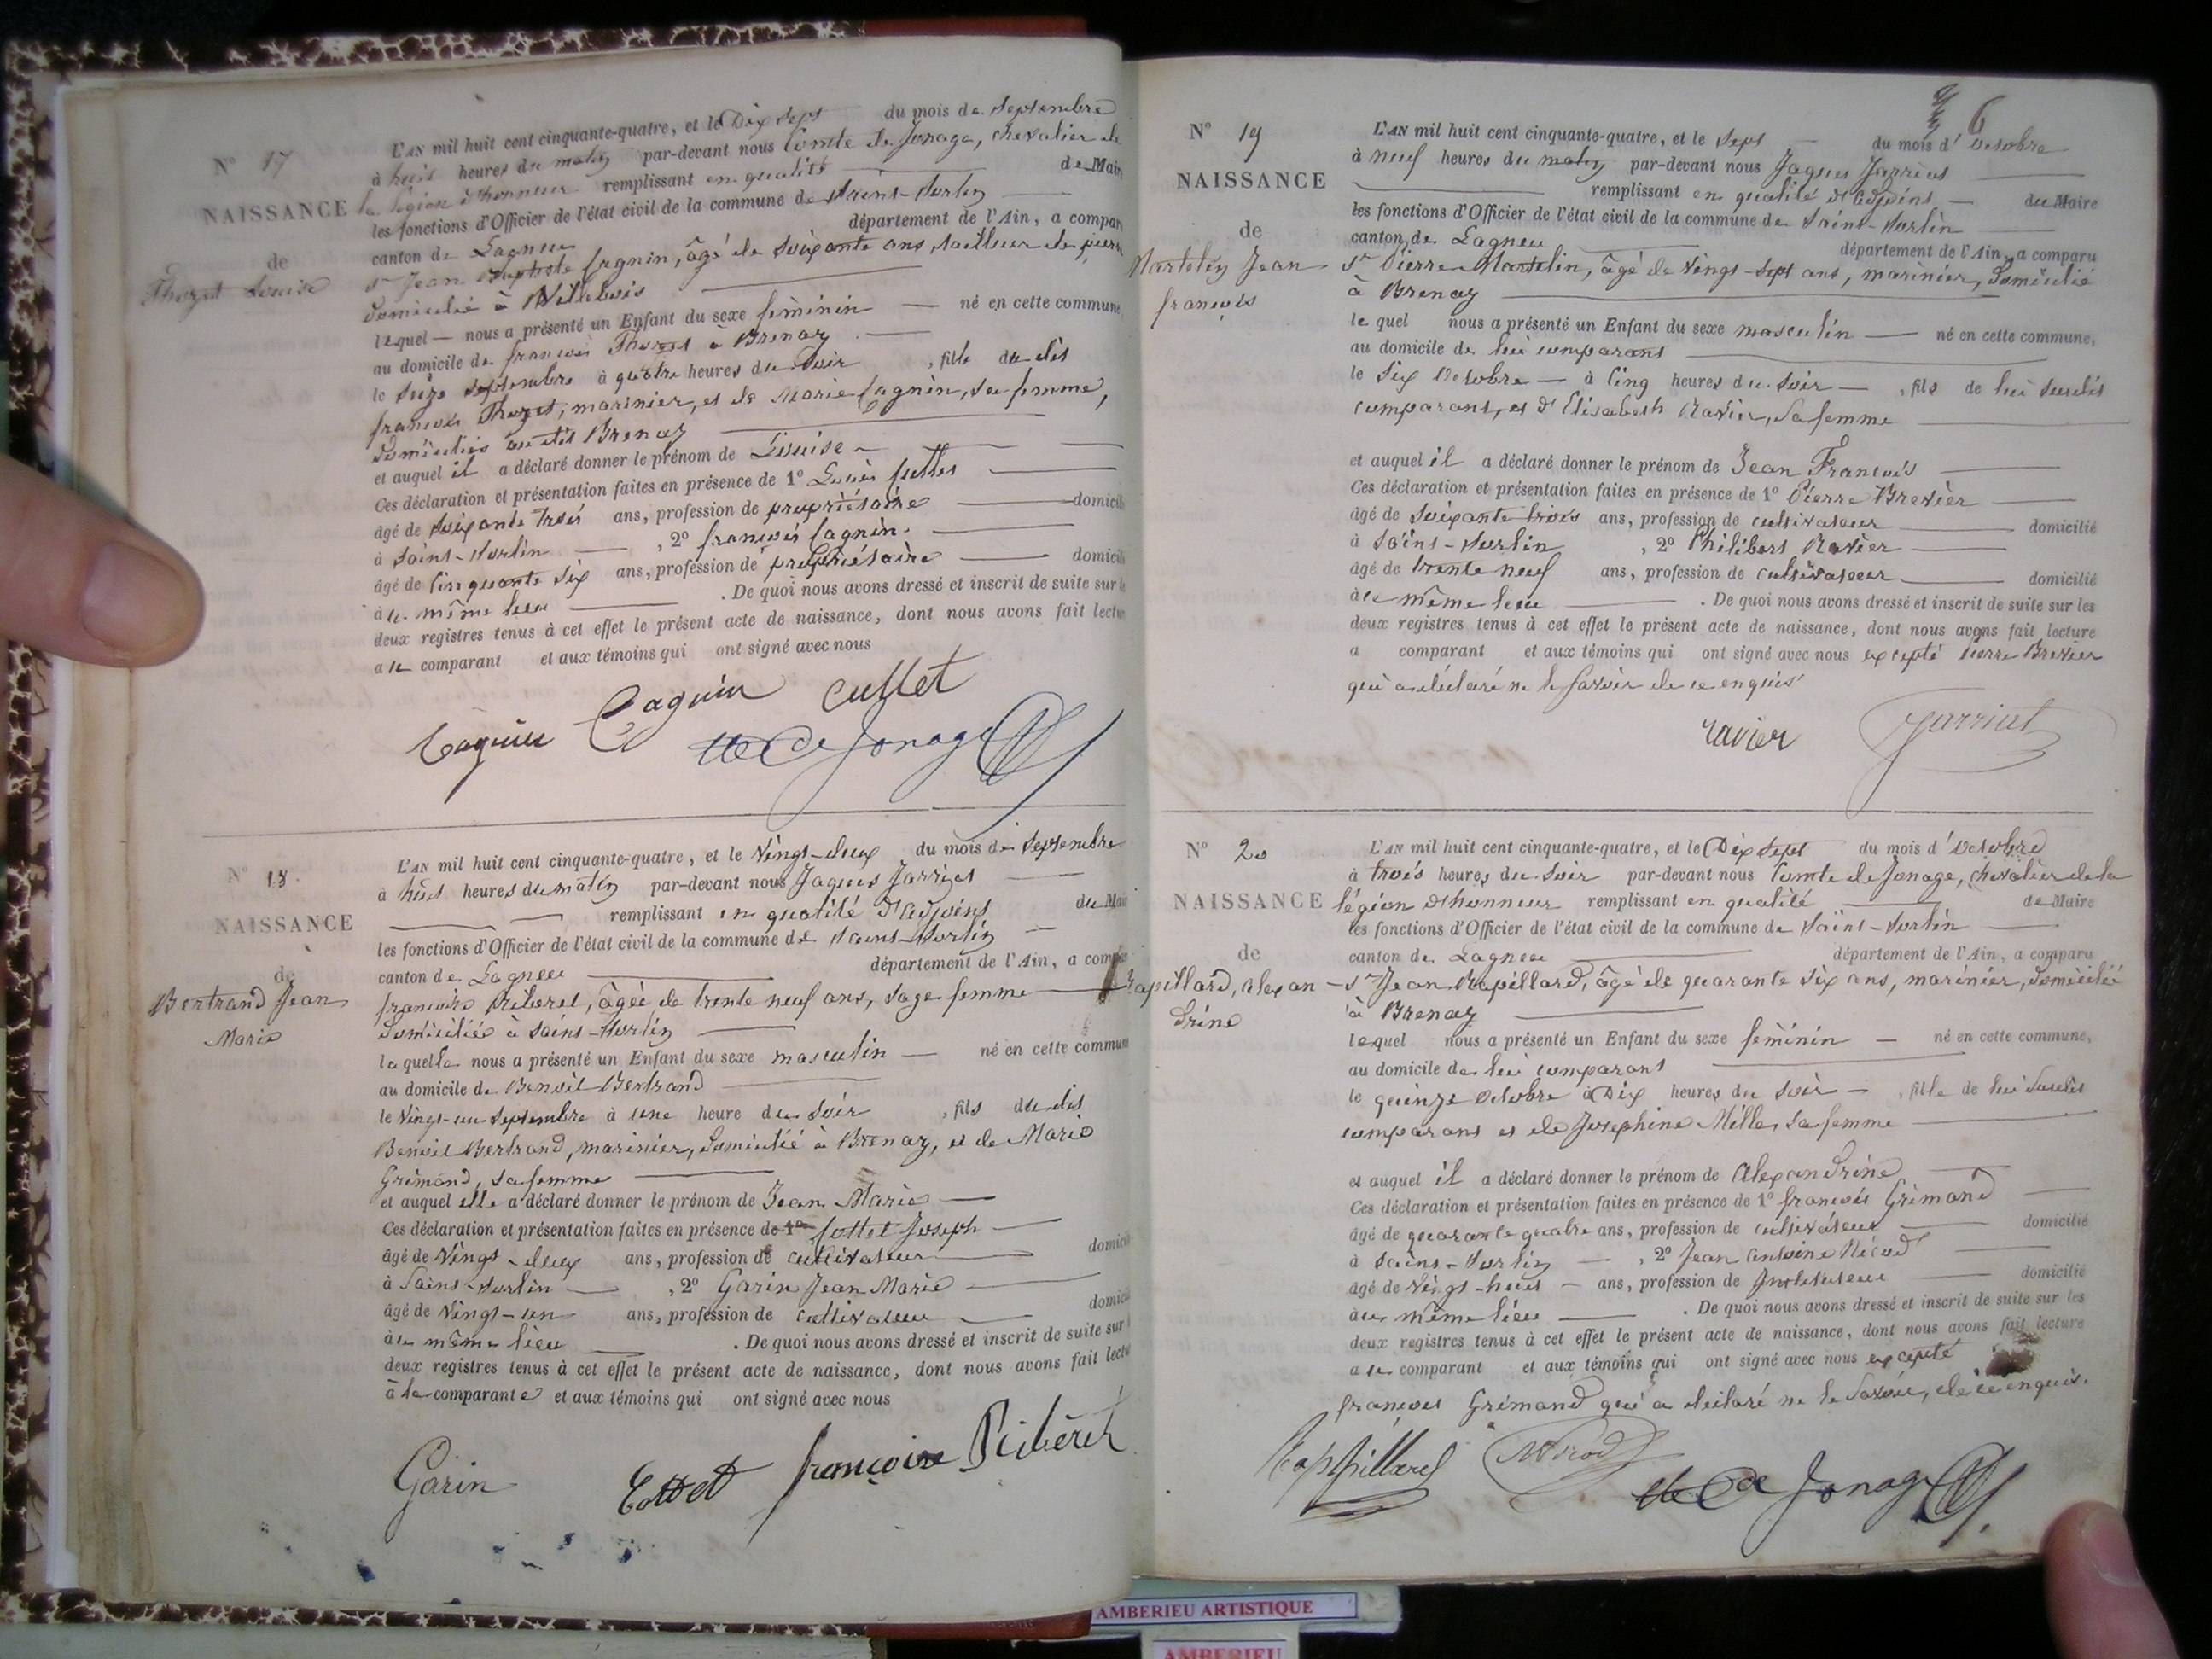 N° 17
NAISSANCE
de
Thozet Louise
L'AN mil huit cent cinquante-quatre, et le Dix Sept du mois de Septembre
à huit heures du matin par-devant nous Comte de Jonage, chevalier de
la légion d'honneur remplissant en qualité de Mair
les fonctions d'Officier de l'état civil de la commune de Saint-Sorlin
canton de Lagneu département de l'Ain, a compar
sr Jean Baptiste Cagnin, âgé de Soixante ans, tailleur de pierre
domicilié à Villebois
lequel nous a présenté un Enfant du sexe féminin né en cette commune,
au domicile de françois Thozet à Brenaz
le Seize Septembre à quatre heures du Soir, fille du dit
françois Thozet, marinier, et de Marie Cagnin, sa femme,
domiciliés au dit Brenaz
et auquel il a déclaré donner le prénom de Louise
Ces déclaration et présentation faites en présence de 1° Louis Cullet
âgé de Soixante trois ans, profession de propriétaire domicili
à Saint-Sorlin, 2° françois Cagnin
âgé de Cinquante Six ans, profession de propriétaire domicili
à ce même lieu. De quoi nous avons dressé et inscrit de suite sur le
deux registres tenus à cet effet le présent acte de naissance, dont nous avons fait lectu
au comparant et aux témoins qui ont signé avec nous
Cagnin Cagnin Cullet
de Jonage
N° 18.
NAISSANCE
de
Bertrand Jean
Marie
L'AN mil huit cent cinquante-quatre, et le Vingt-deux du mois de Septembre
à huit heures du matin par-devant nous Jaques Jarriet
remplissant en qualité d'adjoint du Mai
les fonctions d'Officier de l'état civil de la commune de Saint-Sorlin
canton de Lagneu département de l'Ain, a comp
françoise Riberet, âgée de trente neuf ans, sage femme
domiciliée à Saint-Sorlin
laquelle nous a présenté un Enfant du sexe masculin né en cette commun
au domicile de Benoit Bertrand
le Vingt-un Septembre à une heure du Soir, fils du dit
Benoit Bertrand, marinier, domicilié à Brenaz, et de Marie
Grimand, sa femme
et auquel elle a déclaré donner le prénom de Jean Marie
Ces déclaration et présentation faites en présence de 1° Cottet Joseph
âgé de Vingt-deux ans, profession de cultivateur domicili
à Saint-Sorlin, 2° Garin Jean Marie
âgé de Vingt-un ans, profession de cultivateur domicil
à ce même lieu. De quoi nous avons dressé et inscrit de suite sur l
deux registres tenus à cet effet le présent acte de naissance, dont nous avons fait lectu
à la comparante et aux témoins qui ont signé avec nous
Garin Cottet françoise Riberet
6
N° 19
NAISSANCE
de
Martelin Jean
françois
L'AN mil huit cent cinquante-quatre, et le Sept du mois d'Octobre
à neuf heures du matin par-devant nous Jaques Jarriet
remplissant en qualité d'adjoint du Maire
les fonctions d'Officier de l'état civil de la commune de Saint-Sorlin
canton de Lagneu département de l'Ain, a comparu
sr Pierre Martelin, âgé de Vingt-Sept ans, marinier, domicilié
à Brenaz
lequel nous a présenté un Enfant du sexe masculin né en cette commune,
au domicile de lui comparant
le Six Octobre à Cinq heures du Soir, fils de lui Susdit
comparant, et d'Elisabeth Ravier, sa femme
et auquel il a déclaré donner le prénom de Jean François
Ces déclaration et présentation faites en présence de 1° Pierre Brevier
âgé de Soixante trois ans, profession de cultivateur domicilié
à Saint-Sorlin, 2° Philibert Ravier
âgé de trente neuf ans, profession de cultivateur domicilié
à ce même lieu. De quoi nous avons dressé et inscrit de suite sur les
deux registres tenus à cet effet le présent acte de naissance, dont nous avons fait lecture
a comparant et aux témoins qui ont signé avec nous excepté Pierre Brevier
qui a déclaré ne le savoir de ce enquis
ravier Jarriet
N° 20
NAISSANCE
de
Rapillard, Alexan-
drine
L'AN mil huit cent cinquante-quatre, et le Dix Sept du mois d'Octobre
à trois heures du Soir par-devant nous Comte de Jonage, chevalier de la
légion d'honneur remplissant en qualité de Maire
les fonctions d'Officier de l'état civil de la commune de Saint-Sorlin
canton de Lagneu département de l'Ain, a comparu
sr Jean Rapillard, âgé de quarante Six ans, marinier, domicilié
à Brenaz
lequel nous a présenté un Enfant du sexe féminin né en cette commune,
au domicile de lui comparant
le quinze Octobre à Dix heures du Soir, fille de lui Susdit
comparant et de Josephine Millet sa femme
et auquel il a déclaré donner le prénom de Alexandrine
Ces déclaration et présentation faites en présence de 1° françois Grimand
âgé de quarante quatre ans, profession de cultivateur domicilié
à Saint-Sorlin, 2° Jean Antoine Nicod
âgé de Vingt-huit ans, profession de Instituteur domicilié
au même lieu. De quoi nous avons dressé et inscrit de suite sur les
deux registres tenus à cet effet le présent acte de naissance, dont nous avons fait lecture
au comparant et aux témoins qui ont signé avec nous excepté
françois Grimand qui a déclaré ne le Savoir, de ce enquis.
Rappillard Nicod de Jonage
AMBERIEU ARTISTIQUE
AMBERIEU